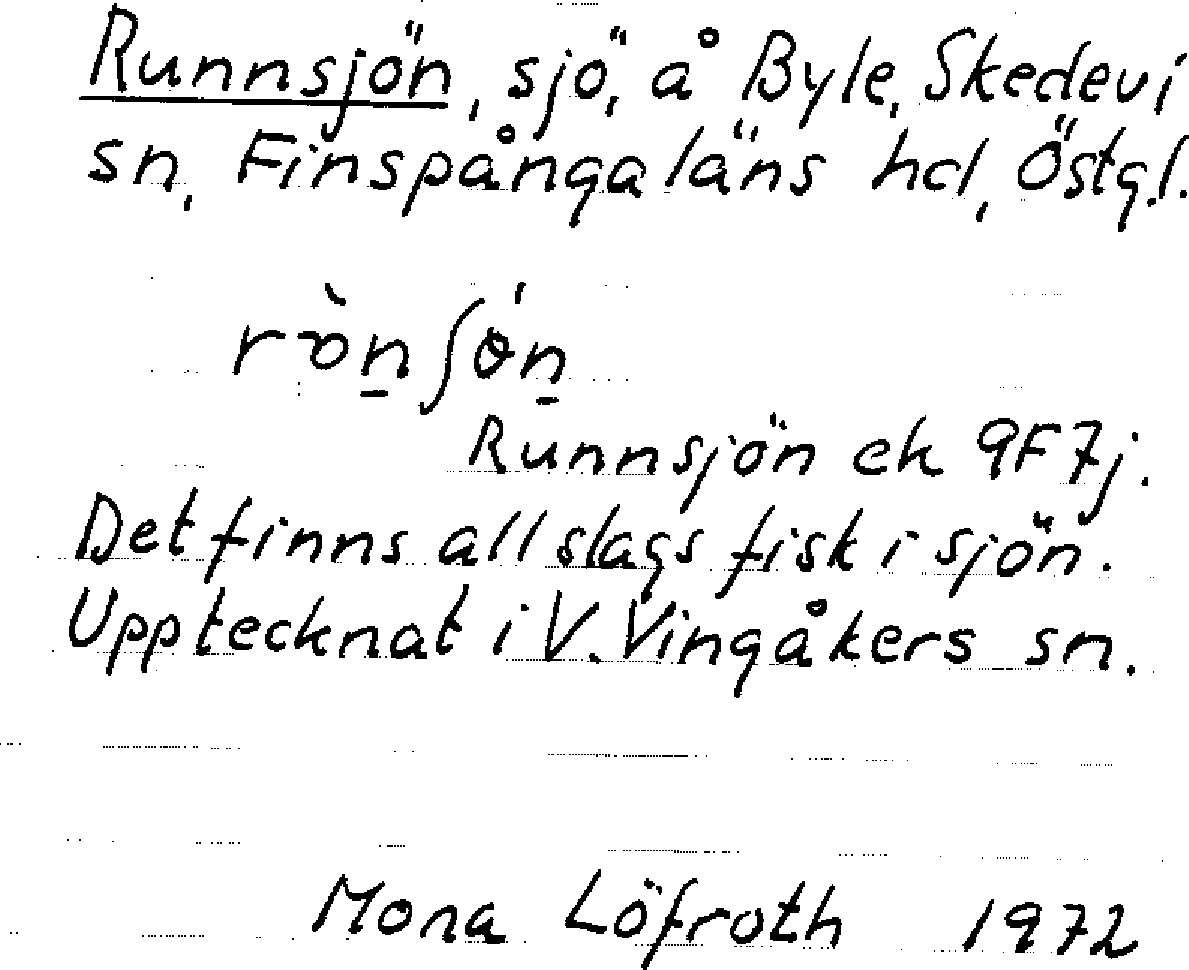 Runnsjön, sjö, å Byle, Skedevi
sn, Finspånga läns hd, Östg.l.
Runnsjön ek 9F7j.
Det finns all slags fisk i sjön.
Upptecknat i V. Vingåkers sn.
Mona Löfroth 1972